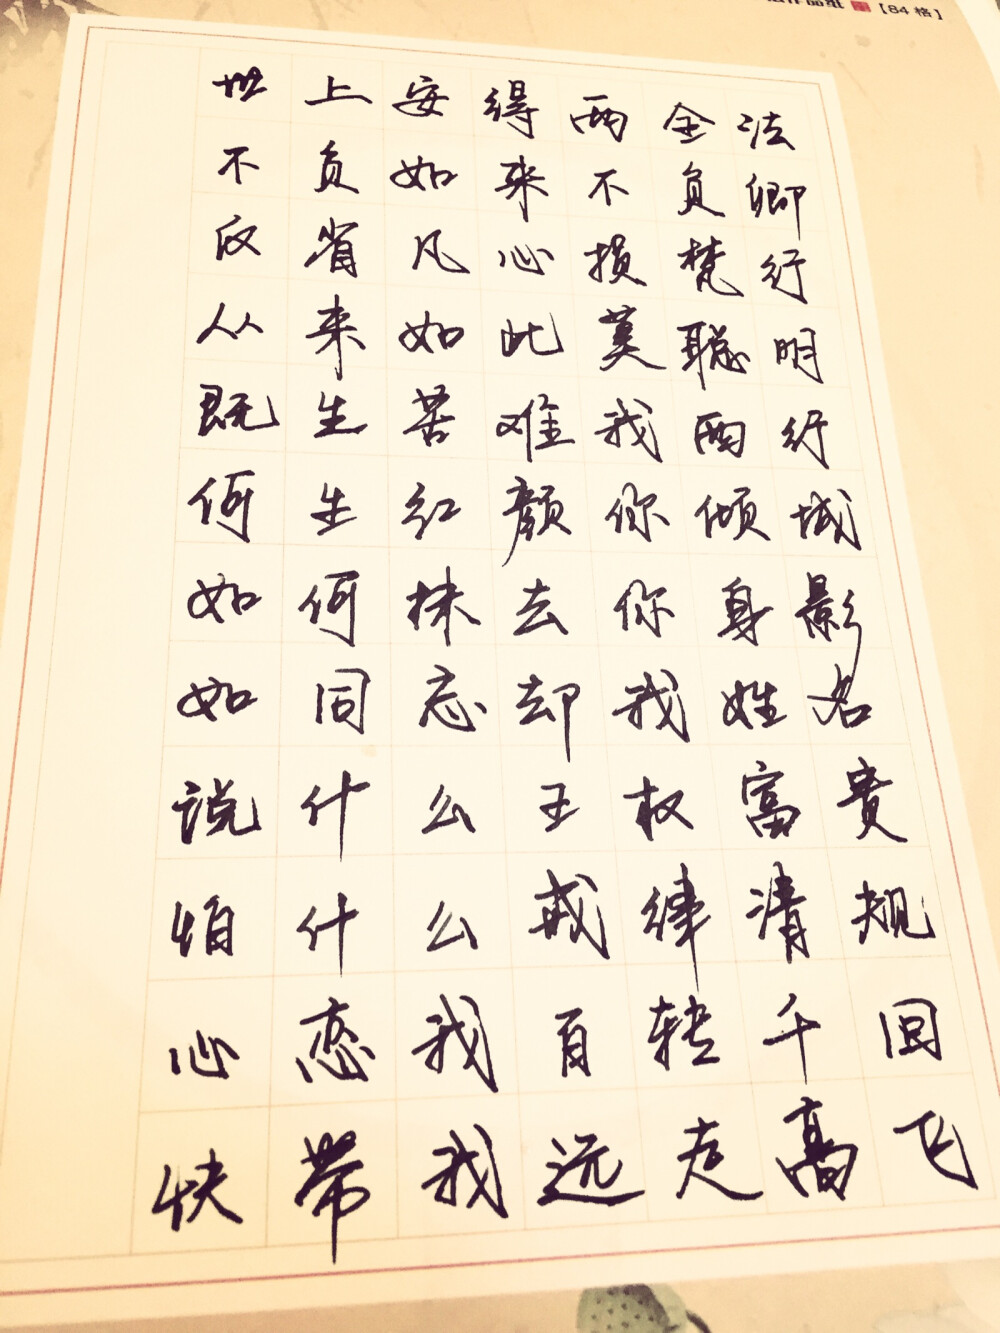 作品纸【84格】
世上安得两全法
不负如来不负卿
反省凡心损梵行
从来如此莫聪明
既生苦难我西行
何生红颜你倾城
如何抹去你身影
如同忘却我姓名
说什么王权富贵
怕什么戒律清规
心恋我百转千回
快带我远走高飞